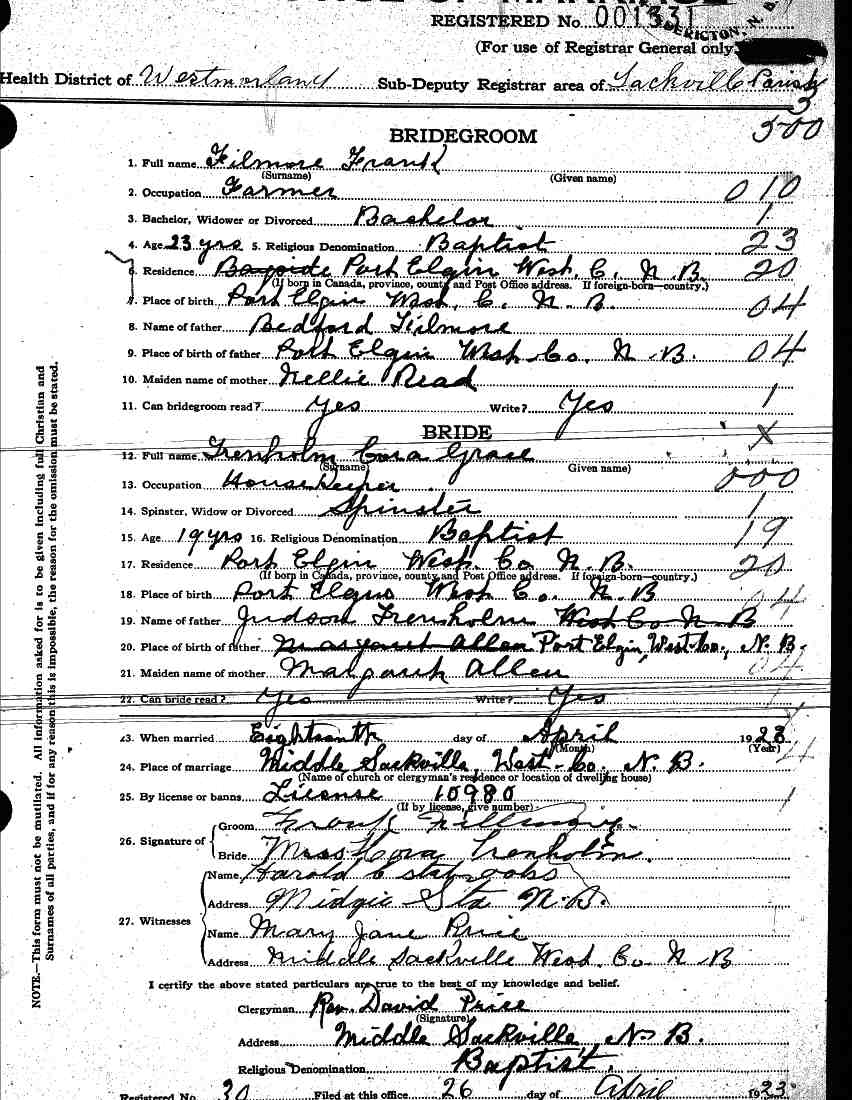 REGISTERED No. 001331
(For use of Registrar General only
Health District of Westmorland Sub-Deputy Registrar area of Sackville Parish
3
500
BRIDEGROOM
1. Full name Filmore Frank
(Surname) (Given name)
2. Occupation Farmer 010
3. Bachelor, Widower or Divorced Bachelor 1
4. Age 23 yrs 5. Religious Denomination Baptist 23
6. Residence Bayside Port Elgin West. C. N. B. 20
(If born in Canada, province, county and Post Office address. If foreign-born—country.)
7. Place of birth Port Elgin West. C. N. B. 04
8. Name of father Bedford Filmore
9. Place of birth of father Port Elgin West Co. N. B. 04
10. Maiden name of mother Nellie Read
11. Can bridegroom read? Yes Write? Yes 1
BRIDE X
12. Full name Trenholm Cora Grace
(Surname) Given name)
13. Occupation Housekeeper 000
14. Spinster, Widow or Divorced Spinster 1
15. Age 19 yrs 16. Religious Denomination Baptist 19
17. Residence Port Elgin West. Co N. B. 20
(If born in Canada, province, county and Post Office address. If foreign-born—country.)
18. Place of birth Port Elgin West C. N. B 04
19. Name of father Judson Trenholm West Co N. B
20. Place of birth of father Margaret Allan Port Elgin, West. Co., N. B.
21. Maiden name of mother Margaret Allen 04
22. Can bride read? Yes Write? Yes
23. When married Eighteenth day of April 1923
(Month) (Year)
24. Place of marriage Middle Sackville, West-Co. N. B.
(Name of church or clergyman's residence or location of dwelling house)
25. By license or banns License 10980 1
(If by license, give number)
26. Signature of Groom Frank Fillmore
Bride Miss Cora Trenholm.
27. Witnesses Name Harold E
Address Midgic Sta N. B.
Name Mary Jane Price
Address Middle Sackville West. Co. N. B
I certify the above stated particulars are true to the best of my knowledge and belief.
Clergyman Rev. David Price
(Signature)
Address Middle Sackville N. B.
Religious Denomination Baptist.
Registered No. 30 Filed at this office 26 day of April 1923
NOTE.—This form must not be mutilated. All information asked for is to be given including full Christian and
Surnames of all parties, and if for any reason this is impossible, the reason for the omission must be stated.